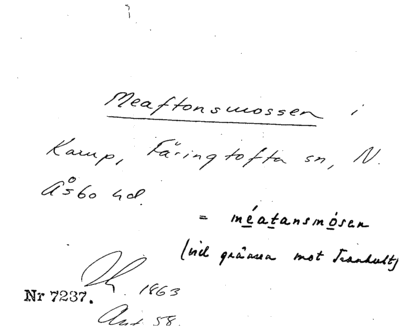 Meaftonsmossen i
Karup, Färingtofta sn, N.
Åsbo hd.
= méatansmósen
(vid gränsen mot Tranhult)
Nr 7237. 1863
58